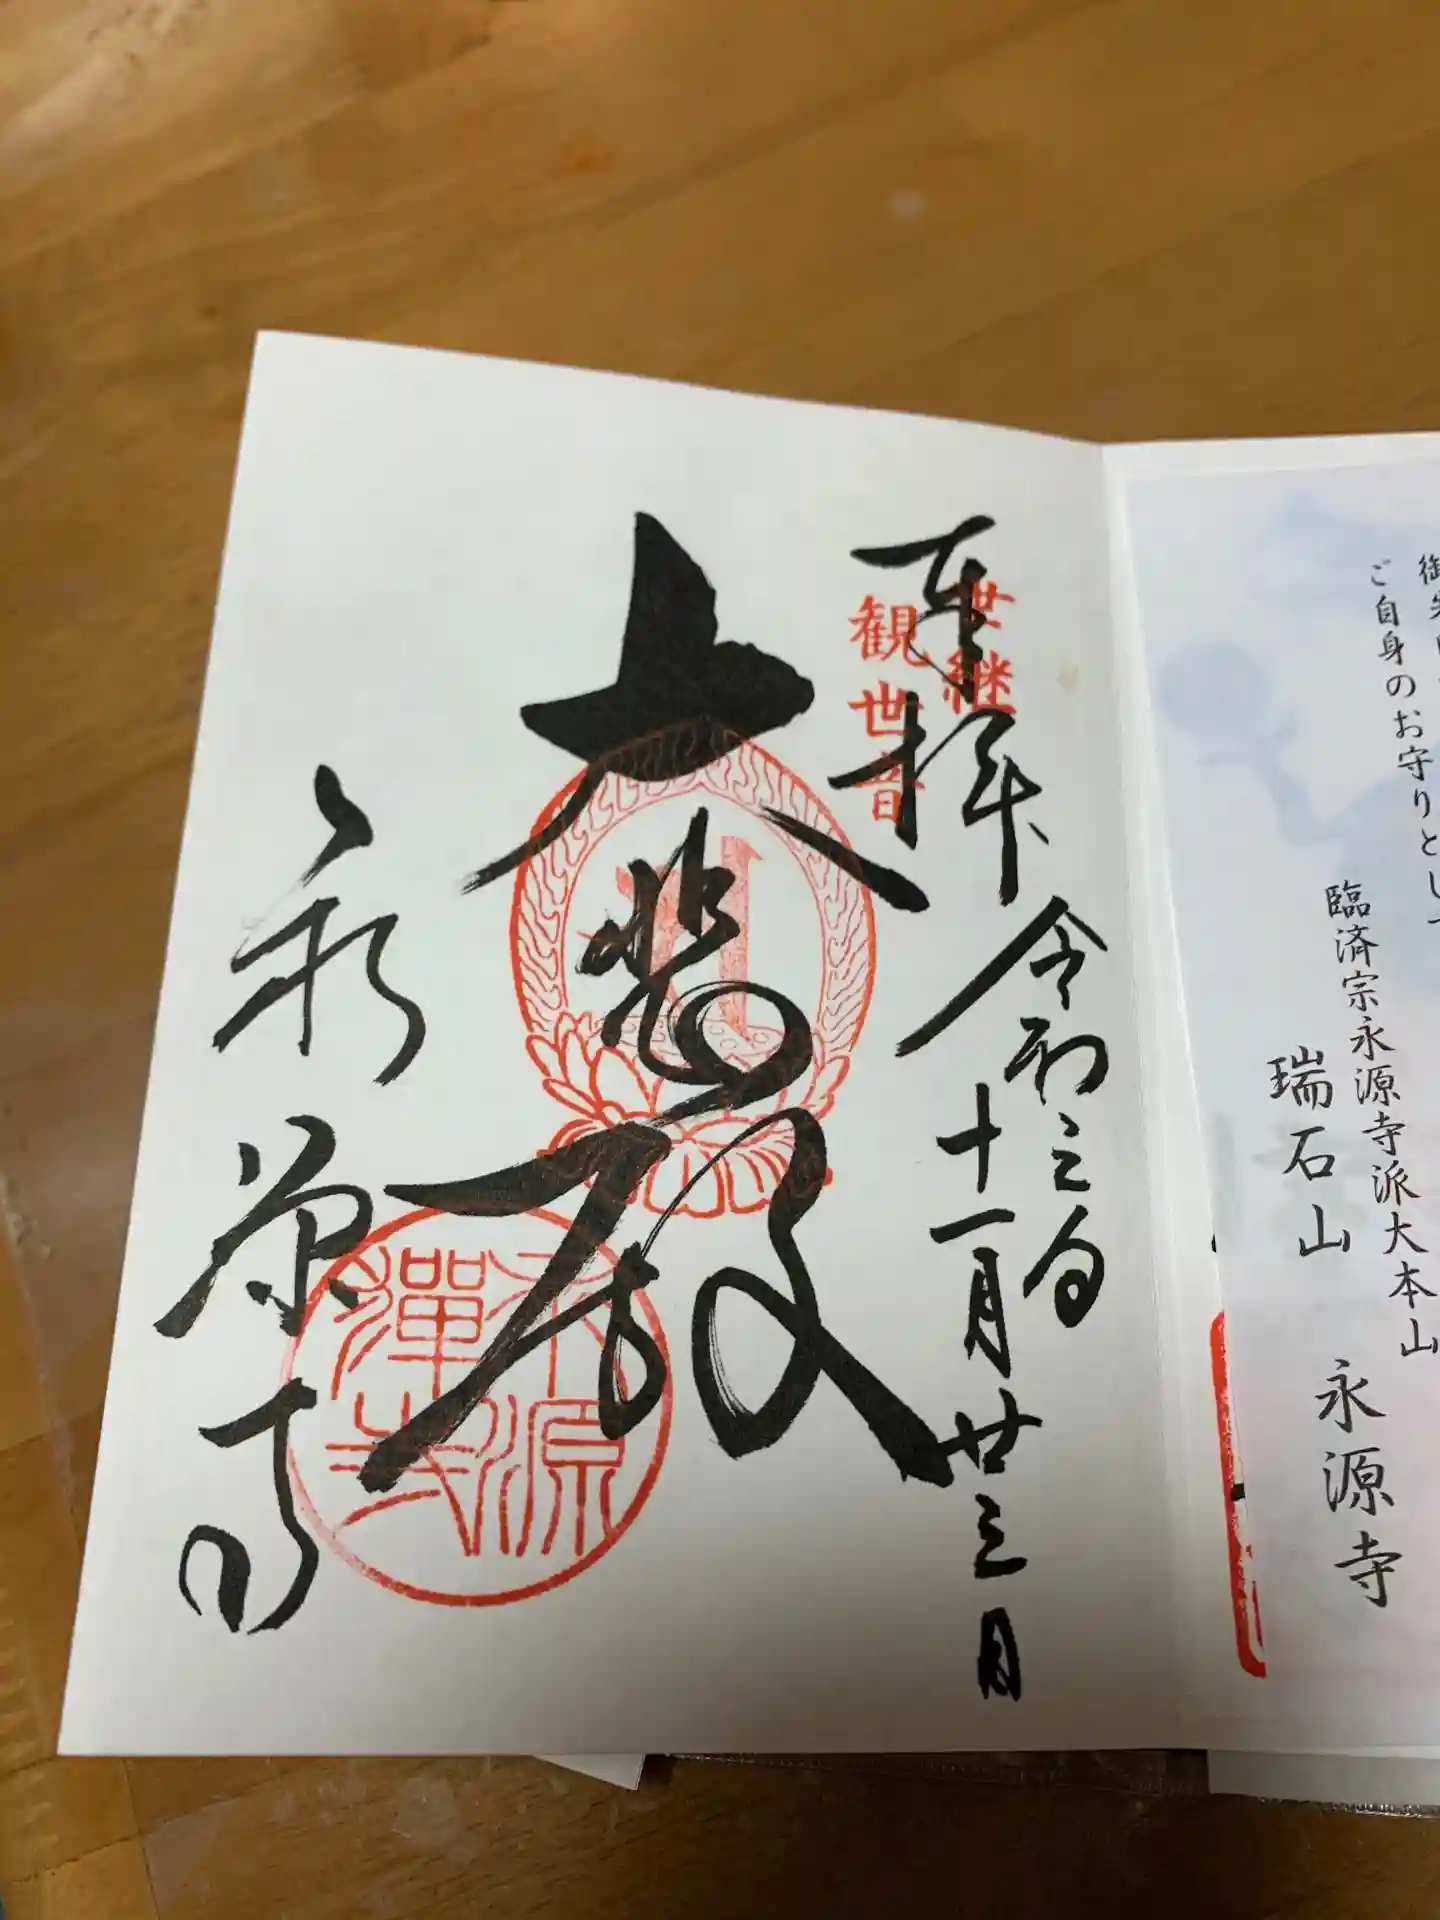 ご自身のお守りとして
臨済宗永源寺派大本山
瑞石山 永源寺
奉拝 令和三年
十一月廿三日
世継
観世音
大悲殿
永源
禪寺
永源寺